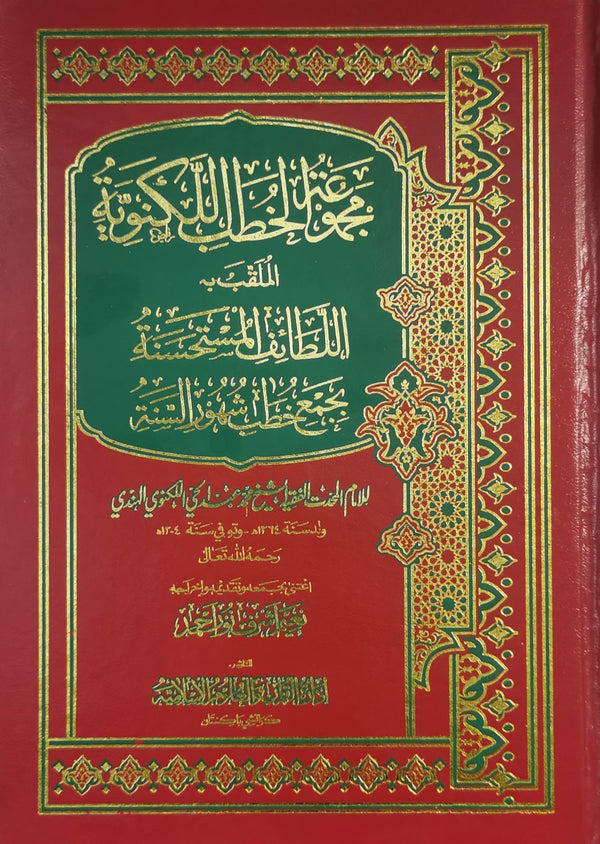 مجموعة الخطب اللكنوية
الملقب به
اللطائف المستحسنة
بجمع خطب شهور السنة
للإمام المحدث الفقيه الشيخ محمد عبد الحي اللكنوي الهندي
ولد سنة ١٢٦٤ه‍ - وتوفي سنة ١٣٠٤ه‍
رحمه الله تعالى
اعتنى بجمعه وتقديمه وإخراجه
نعيم أشرف نور أحمد
الناشر
إدارة القرآن والعلوم الإسلامية
كراتشي باكستان